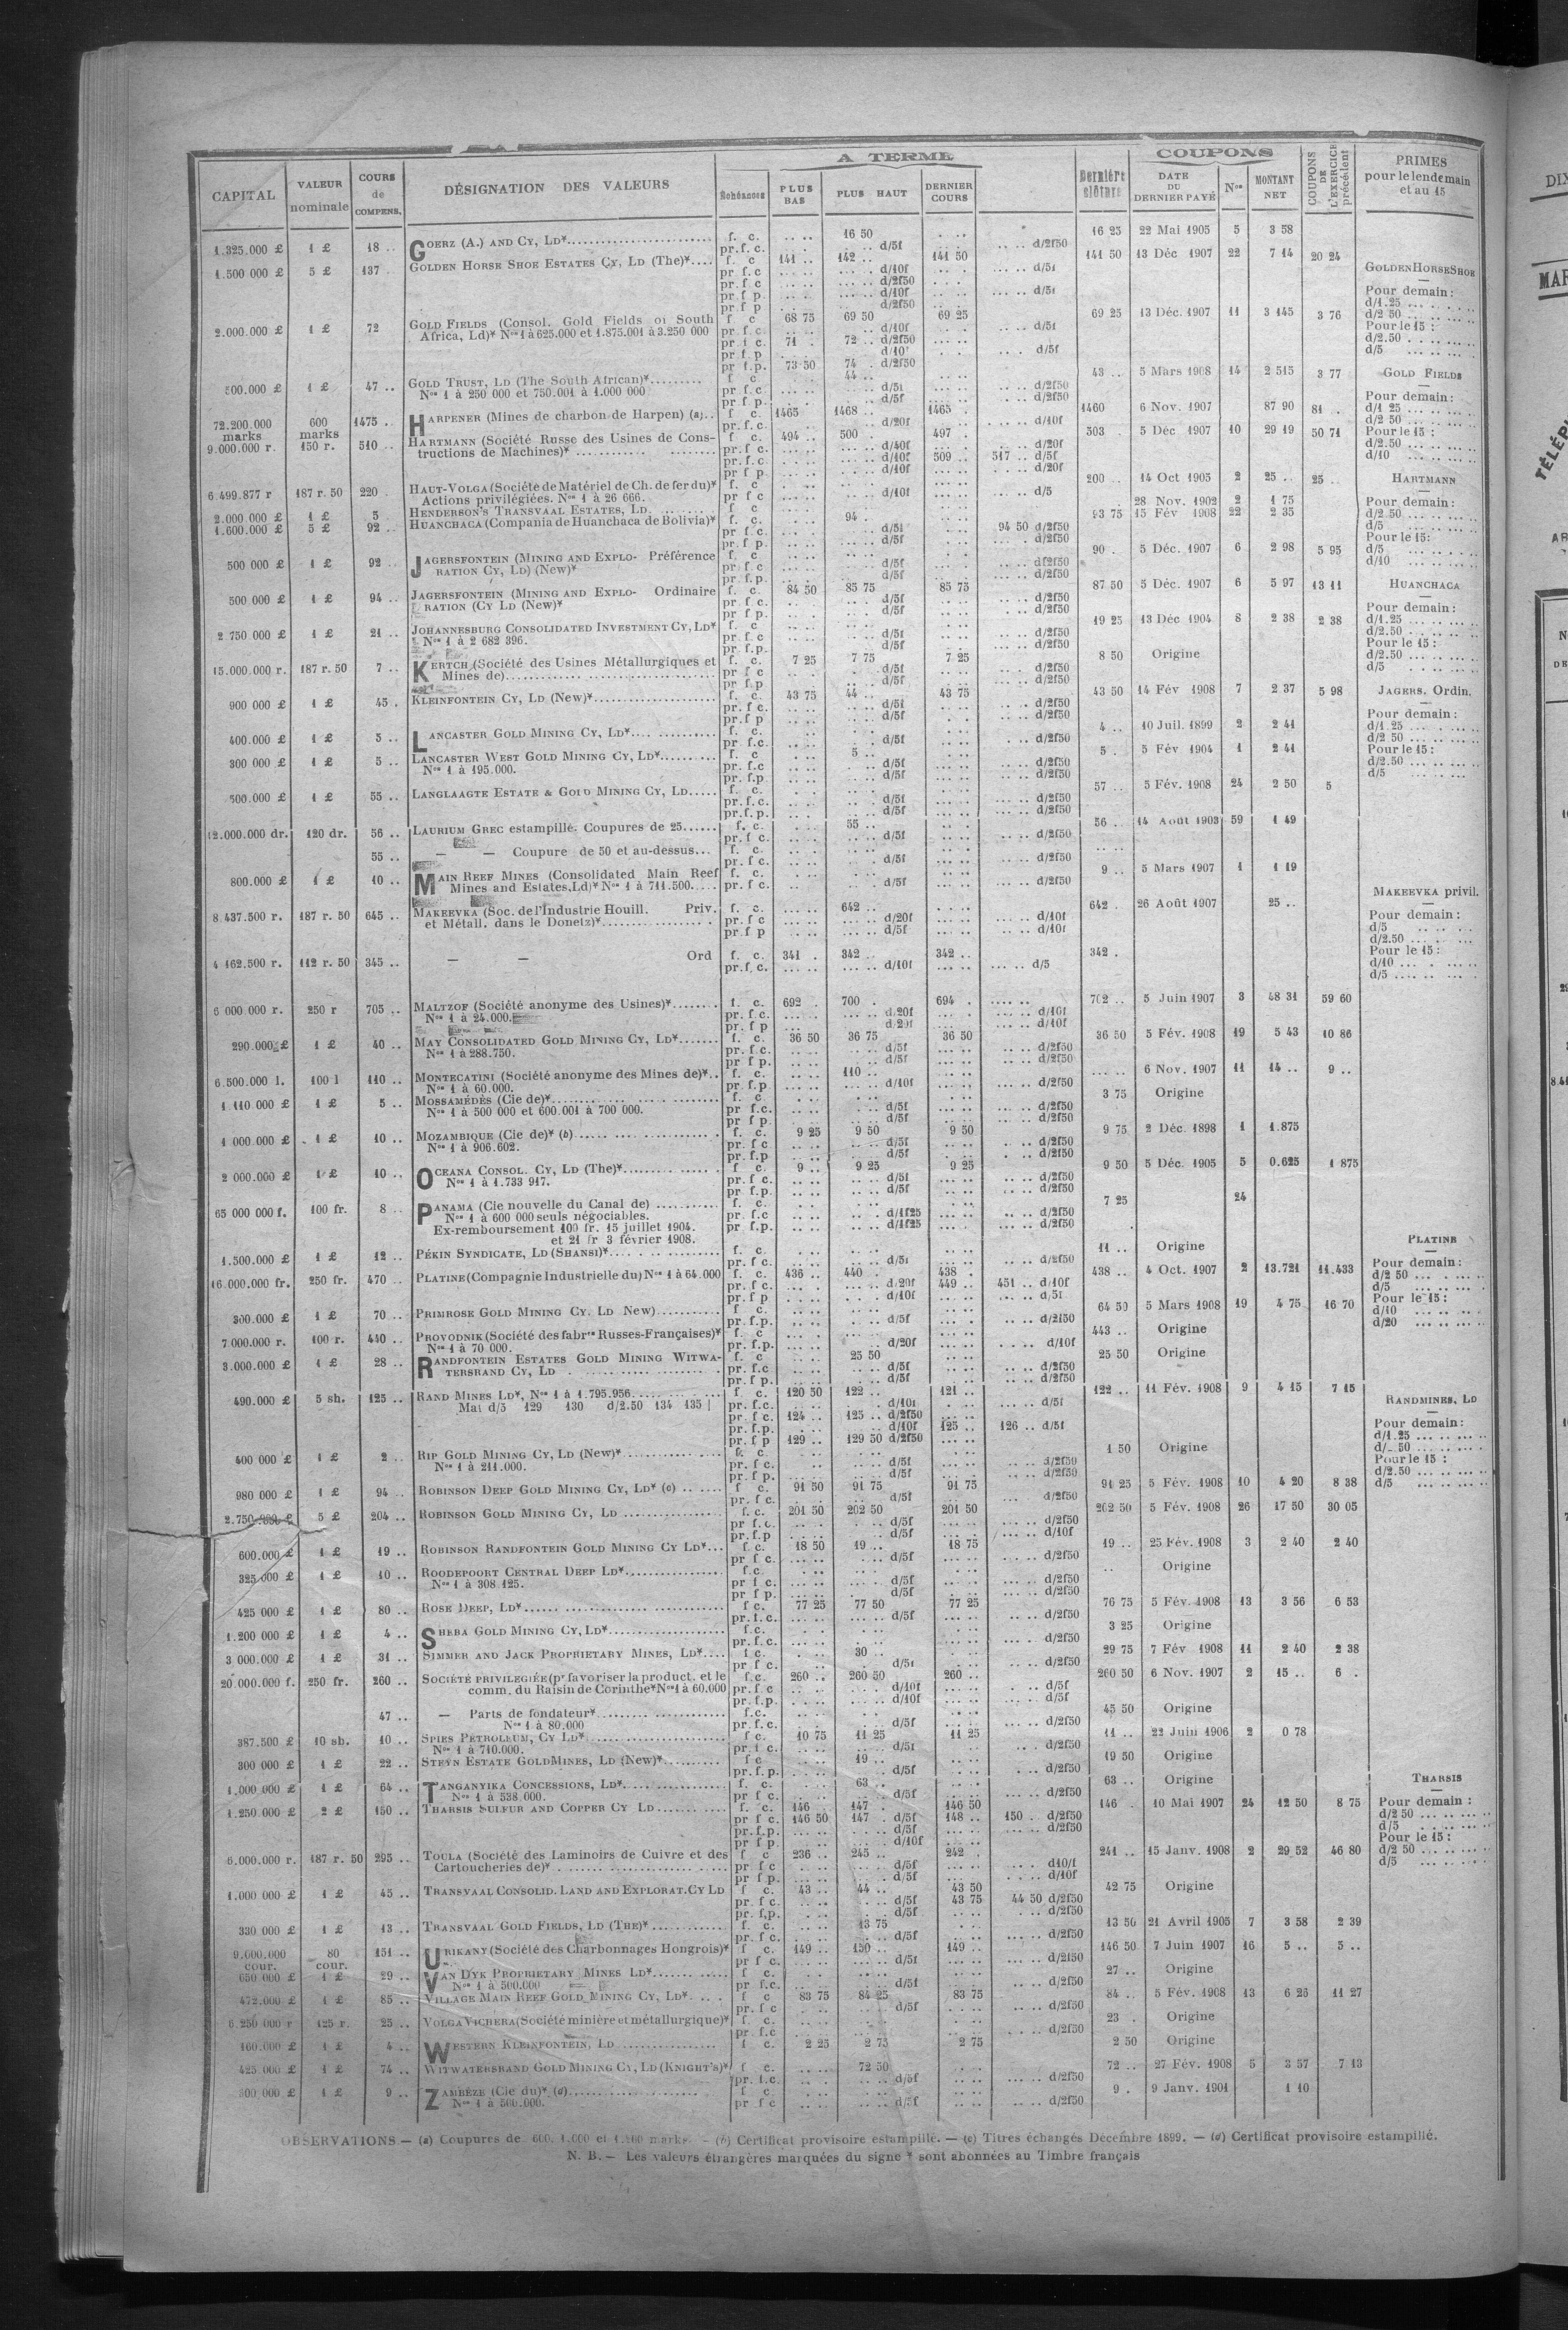 A TERME
COUPONS
CAPITAL | VALEUR nominale | COURS de COMPENS. | DÉSIGNATION DES VALEURS | Échéances | PLUS BAS | PLUS HAUT | DERNIER COURS | Dernière clôture | DATE DU DERNIER PAYÉ | Nos | MONTANT NET | COUPONS DE L'EXERCICE précédent | PRIMES pour le lendemain et au 15
1.325.000 £ | 1 £ | 18 .. | GOERZ (A.) AND CY, LD* | f. c. | 16 50 | 16 25 | 22 Mai 1905 | 5 | 3 58
pr. f. c. | d/5f | d/2f50
1.500 000 £ | 5 £ | 137 | GOLDEN HORSE SHOE ESTATES CY, LD (The)* | f. c | 141 .. | 142 .. | 141 50 | 141 50 | 13 Déc 1907 | 22 | 7 14 | 20 24
pr. f. c | d/10f | d/5f
pr. f c | d/2f50
pr. f p. | d/10f | d/5f
pr. f p | d/2f50
GOLDEN HORSE SHOE
Pour demain :
d/1.25
d/2 50
Pour le 15 :
d/2.50
d/5
2.000.000 £ | 1 £ | 72 | GOLD FIELDS (Consol. Gold Fields of South | f c | 68 75 | 69 50 | 69 25 | 69 25 | 13 Déc. 1907 | 11 | 3 145 | 3 76
Africa, Ld)* Nos 1 à 625.000 et 1.875.001 à 3.250 000 | pr. f. c. | d/10f | d/5f
pr. f c. | 71 . | 72 .. d/2f50
pr. f p | d/10f | d/5f
pr. f.p. | 73 50 | 74 . d/2f50
500.000 £ | 1 £ | 47 .. | GOLD TRUST, LD (The South African)* | f c | 44 .. | 43 .. | 5 Mars 1908 | 14 | 2 515 | 3 77
Nos 1 à 250 000 et 750.001 à 1.000 000 | pr. f c. | d/5f | d/2f50
pr. f p. | d/5f | d/2f50
GOLD FIELDS
Pour demain :
d/1 25
d/2 50
Pour le 15 :
d/2.50
d/10
72.200.000 marks | 600 marks | 1475 .. | HARPENER (Mines de charbon de Harpen) (a) | f c. | 1465 | 1468 .. | 1465 . | 1460 | 6 Nov. 1907 | 87 90 | 81 .
pr. f. c. | d/20f | d/10f
9.000.000 r. | 150 r. | 510 .. | HARTMANN (Société Russe des Usines de Cons- | f c. | 494 .. | 500 . | 497 . | 503 .. | 5 Déc 1907 | 10 | 29 19 | 50 71
tructions de Machines)* | pr. f c. | d/40f | d/20f
pr. f. c. | d/10f | 509 .. | 517 .. d/5f
pr. f p. | d/10f | d/20f
6.499.877 r | 187 r. 50 | 220 | HAUT-VOLGA (Société de Matériel de Ch. de fer du)* | f. c | 200 .. | 14 Oct 1905 | 2 | 25 .. | 25 ..
Actions privilégiées. Nos 1 à 26 666. | pr f c | d/10f | d/5
HARTMANN
Pour demain :
d/2.50
d/5
Pour le 15:
d/5
d/10
2.000.000 £ | 1 £ | 5 | HENDERSON'S TRANSVAAL ESTATES, LD. | 28 Nov. 1902 | 2 | 1 75
1.600.000 £ | 5 £ | 92 .. | HUANCHACA (Compania de Huanchaca de Bolivia)* | f. c. | 94 . | 93 75 | 15 Fév 1908 | 22 | 2 35
pr f c. | d/5f | 94 50 d/2f50
pr. f p. | d/5f | d/2f50
500 000 £ | 1 £ | 92 .. | JAGERSFONTEIN (MINING AND EXPLO- Préférence | f. c | 90 . | 5 Déc. 1907 | 6 | 2 98 | 5 95
RATION CY, LD) (New)* | pr f c | d/5f | d/2f50
pr. f.p. | d/5f | d/2f50
500 000 £ | 1 £ | 94 .. | JAGERSFONTEIN (MINING AND EXPLO- Ordinaire | f. c. | 84 50 | 85 75 | 85 75 | 87 50 | 5 Déc. 1907 | 6 | 5 97 | 13 11
RATION (CY LD (New)* | pr f c. | d/5f | d/2f50
pr f p. | d/5f | d/2f50
HUANCHACA
Pour demain :
d/1.25
d/2.50
Pour le 15 :
d/2.50
d/5
2 750 000 £ | 1 £ | 21 .. | JOHANNESBURG CONSOLIDATED INVESTMENT CY, LD* | f c | 19 25 | 13 Déc 1904 | 8 | 2 38 | 2 38
Nos 1 à 2 682 396. | pr. f c | d/5f | d/2f50
pr. f.p. | d/5f | d/2f50
15.000.000 r. | 187 r. 50 | 7 .. | KERTCH (Société des Usines Métallurgiques et | f. c. | 7 25 | 7 75 | 7 25 | 8 50 | Origine
Mines de) | pr f c | d/5f | d/2f50
pr f.p | d/5f | d/2f50
900 000 £ | 1 £ | 45 . | KLEINFONTEIN CY, LD (New)* | f. c. | 43 75 | 44 .. | 43 75 | 43 50 | 14 Fév 1908 | 7 | 2 37 | 5 98
pr. f c. | d/5f | d/2f50
pr. f p | d/5f | d/2f50
JAGERS. Ordin.
Pour demain :
d/1 25
d/2 50
Pour le 15 :
d/2.50
d/5
400.000 £ | 1 £ | 5 .. | LANCASTER GOLD MINING CY, LD* | f. c. | 4 .. | 10 Juil. 1899 | 2 | 2 41
pr. f.c. | d/5f | d/2f50
300 000 £ | 1 £ | 5 .. | LANCASTER WEST GOLD MINING CY, LD* | f. c | 5 .. | 5 . | 5 Fév 1904 | 1 | 2 41
Nos 1 à 195.000. | pr. f.c | d/5f | d/2f50
pr. f.p. | d/5f | d/2f50
500.000 £ | 1 £ | 55 .. | LANGLAAGTE ESTATE & GOLD MINING CY, LD | f. c. | 57 .. | 5 Fév. 1908 | 24 | 2 50 | 5
pr. f. c. | d/5f | d/2f50
pr. f. p. | d/5f | d/2f50
12.000.000 dr. | 120 dr. | 56 .. | LAURIUM GREC estampillé. Coupures de 25 | f. c. | 55 .. | 56 .. | 14 Août 1903 | 59 | 1 49
pr. f c. | d/5f | d/2f50
55 .. | — — Coupure de 50 et au-dessus | f. c.
pr. f c. | d/5f | d/2f50
800.000 £ | 1 £ | 10 .. | MAIN REEF MINES (Consolidated Main Reef | f. c. | 9 .. | 5 Mars 1907 | 1 | 1 19
Mines and Estates, Ld)* Nos 1 à 711.500. | pr. f c. | d/5f | d/2f50
8.437.500 r. | 187 r. 50 | 645 .. | MAKEEVKA (Soc. de l'Industrie Houill. Priv. | f. c. | 642 .. | 642 . | 26 Août 1907 | 25 ..
et Métall. dans le Donetz)* | pr. f c | d/20f | d/10f
pr. f p | d/5f | d/10f
MAKEEVKA privil.
Pour demain :
d/5
d/2.50
Pour le 15 :
d/10
d/5
4 162.500 r. | 112 r. 50 | 345 .. | — — Ord | f. c. | 341 . | 342 .. | 342 .. | 342 .
pr. f. c. | d/10f | d/5
6 000 000 r. | 250 r | 705 .. | MALTZOF (Société anonyme des Usines)* | f. c. | 692 . | 700 . | 694 . | 702 .. | 5 Juin 1907 | 3 | 48 31 | 59 60
Nos 1 à 24.000. | pr. f. c. | d/20f | d/10f
pr. f p | d/20f | d/10f
290.000 £ | 1 £ | 40 .. | MAY CONSOLIDATED GOLD MINING CY, LD* | f. c. | 36 50 | 36 75 | 36 50 | 36 50 | 5 Fév. 1908 | 19 | 5 43 | 10 86
Nos 1 à 288.750. | pr. f c. | d/5f | d/2f50
pr f p. | d/5f | d/2f50
6.500.000 l. | 100 l | 110 .. | MONTECATINI (Société anonyme des Mines de)* | f. c. | 110 .. | 6 Nov. 1907 | 11 | 14 .. | 9 ..
Nos 1 à 60.000. | pr. f.p | d/10f | d/2f50
1 110 000 £ | 1 £ | 5 .. | MOSSAMÉDÈS (Cie de)* | f. c. | 3 75 | Origine
Nos 1 à 500 000 et 600.001 à 700 000. | pr f.c. | d/5f | d/2f50
pr f p. | d/5f | d/2f50
1 000.000 £ | 1 £ | 10 .. | MOZAMBIQUE (Cie de)* (b) | f. c. | 9 25 | 9 50 | 9 50 | 9 75 | 2 Déc. 1898 | 1 | 1.875
Nos 1 à 906.602. | pr. f c | d/5f | d/2f50
pr. f.p | d/5f | d/2f50
2 000.000 £ | 1 £ | 10 .. | OCEANA CONSOL. CY, LD (The)* | f c. | 9 .. | 9 25 | 9 25 | 9 50 | 5 Déc. 1905 | 5 | 0.625 | 1 875
Nos 1 à 1.733 917. | pr. f c. | d/5f | d/2f50
pr. f.p. | d/5f | d/2f50
65 000 000 f. | 100 fr. | 8 | PANAMA (Cie nouvelle du Canal de) | f. c. | 7 25 | 24
Nos 1 à 600 000 seuls négociables. | pr. f.c | d/1f25 | d/2f50
Ex-remboursement 100 fr. 15 juillet 1904. | pr f.p. | d/1f25 | d/2f50
et 21 fr 3 février 1908.
1.500.000 £ | 1 £ | 12 .. | PÉKIN SYNDICATE, LD (SHANSI)* | f. c. | 11 .. | Origine
pr. f c. | d/5f | d/2f50
16.000.000 fr. | 250 fr. | 470 .. | PLATINE (Compagnie Industrielle du) Nos 1 à 64.000 | f. c. | 436 .. | 440 . | 438 . | 438 .. | 4 Oct. 1907 | 2 | 13.721 | 11.433
pr. f c. | d/20f | 449 .. | 451 .. d/10f
pr. f p | d/10f | d/5f
PLATINE
Pour demain :
d/2 50
d/5
Pour le 15 :
d/10
d/20
300.000 £ | 1 £ | 70 .. | PRIMROSE GOLD MINING CY. LD New) | f c. | 64 50 | 5 Mars 1908 | 19 | 4 75 | 16 70
pr. f.p. | d/5f | d/2f50
7.000.000 r. | 100 r. | 440 .. | PROVODNIK (Société des fabres Russes-Françaises)* | f. c | 443 .. | Origine
Nos 1 à 70 000. | pr. f.p. | d/20f | d/10f
3.000.000 £ | 1 £ | 28 .. | RANDFONTEIN ESTATES GOLD MINING WITWA- | f. c | 25 50 | 25 50 | Origine
TERSRAND CY, LD | pr. f.c | d/5f | d/2f50
pr. f p. | d/5f | d/2f50
490.000 £ | 5 sh. | 125 .. | RAND MINES LD*, Nos 1 à 1.795.956 | f c. | 120 50 | 122 .. | 121 .. | 122 .. | 11 Fév. 1908 | 9 | 4 15 | 7 15
Mai d/5 129 130 d/2.50 134 135 | pr. f.c. | d/10f | d/5f
pr. f c. | 124 .. | 125 .. d/2f50
pr. f.p. | d/10f | 125 .. | 126 .. d/5f
pr. f p | 129 .. | 129 50 d/2f50
RANDMINES, LD
Pour demain :
d/1.25
d/ 50
Pour le 15 :
d/2.50
d/5
400 000 £ | 1 £ | 2 .. | RIP GOLD MINING CY, LD (New)* | f. c | 1 50 | Origine
Nos 1 à 211.000. | pr. f c. | d/5f | d/2f50
pr. f p. | d/5f | d/2f50
980 000 £ | 1 £ | 94 .. | ROBINSON DEEP GOLD MINING CY, LD* (c) | f c | 91 50 | 91 75 | 91 75 | 91 25 | 5 Fév. 1908 | 10 | 4 20 | 8 38
pr. f c. | d/5f | d/2f50
2.750 000 £ | 5 £ | 204 .. | ROBINSON GOLD MINING CY, LD | f. c. | 201 50 | 202 50 | 201 50 | 202 50 | 5 Fév. 1908 | 26 | 17 50 | 30 05
pr f. c. | d/5f | d/2f50
pr. f.p | d/5f | d/10f
600.000 £ | 1 £ | 19 .. | ROBINSON RANDFONTEIN GOLD MINING CY LD* | f. c. | 18 50 | 19 .. | 18 75 | 19 .. | 25 Fév. 1908 | 3 | 2 40 | 2 40
pr f c. | d/5f | d/2f50
325 000 £ | 1 £ | 10 .. | ROODEPOORT CENTRAL DEEP LD* | f.c. | Origine
Nos 1 à 308 125. | pr f c. | d/5f | d/2f50
pr f p. | d/5f | d/2f50
425 000 £ | 1 £ | 80 .. | ROSE DEEP, LD* | f c. | 77 25 | 77 50 | 77 25 | 76 75 | 5 Fév. 1908 | 13 | 3 56 | 6 53
pr. f. c. | d/5f | d/2f50
1.200 000 £ | 1 £ | 4 .. | SHEBA GOLD MINING CY, LD* | f.c. | 3 25 | Origine
pr. f.c. | d/2f50
3 000.000 £ | 1 £ | 31 .. | SIMMER AND JACK PROPRIETARY MINES, LD* | f c. | 30 .. | 29 75 | 7 Fév 1908 | 11 | 2 40 | 2 38
pr f c. | d/5f | d/2f50
20.000.000 f. | 250 fr. | 260 .. | SOCIÉTÉ PRIVILEGIÉE (pr favoriser la product. et le | f.c. | 260 .. | 260 50 | 260 .. | 260 50 | 6 Nov. 1907 | 2 | 15 .. | 6 .
comm. du Raisin de Corinthe* Nos 1 à 60.000 | pr. f c | d/10f | d/5f
pr. f.p. | d/10f | d/5f
47 .. | — Parts de fondateur* | f.c. | 45 50 | Origine
Nos 1 à 80.000 | pr. f. c. | d/5f | d/2f50
387.500 £ | 10 sh. | 10 .. | SPIES PÉTROLEUM, CY LD* | f c. | 10 75 | 11 25 | 11 25 | 11 .. | 22 Juin 1906 | 2 | 0 78
Nos 1 à 710.000. | pr. f c. | d/5f | d/2f50
300 000 £ | 1 £ | 22 .. | STEYN ESTATE GOLD MINES, LD (New)* | f c | 19 .. | 19 50 | Origine
pr. f.p. | d/5f | d/2f50
1.000 000 £ | 1 £ | 64 .. | TANGANYIKA CONCESSIONS, LD* | f. c. | 63 . | 63 .. | Origine
Nos 1 à 538 000. | pr f c. | d/5f | d/2f50
1.250.000 £ | 2 £ | 150 .. | THARSIS SULFUR AND COPPER CY LD | f. c. | 146 | 147 . | 146 50 | 146 . | 10 Mai 1907 | 24 | 12 50 | 8 75
pr f c. | 146 50 | 147 . d/5f | 148 .. | 150 . d/2f50
pr. f.p. | d/5f | d/2f50
pr f p. | d/10f
THARSIS
Pour demain :
d/2 50
d/5
Pour le 15 :
d/2 50
d/5
6.000.000 r. | 187 r. 50 | 295 .. | TOULA (Société des Laminoirs de Cuivre et des | f c | 236 .. | 245 .. | 242 . | 241 .. | 15 Janv. 1908 | 2 | 29 52 | 46 80
Cartoucheries de)* | pr. f c | d/5f | d10/f
pr f p. | d/5f | d/10f
1.000 000 £ | 1 £ | 45 .. | TRANSVAAL CONSOLID. LAND AND EXPLORAT. CY LD | f c. | 43 .. | 44 .. | 43 50 | 42 75 | Origine
pr. f c. | d/5f | 43 75 | 44 50 d/2f50
pr. f.p. | d/5f | d/2f50
330 000 £ | 1 £ | 13 .. | TRANSVAAL GOLD FIELDS, LD (THE)* | f c. | 13 75 | 13 50 | 21 Avril 1905 | 7 | 3 58 | 2 39
pr. f c. | d/5f | d/2f50
9.000.000 cour. | 80 cour. | 151 .. | URIKANY (Société des Charbonnages Hongrois)* | f c. | 149 .. | 150 .. | 149 .. | 146 50 | 7 Juin 1907 | 16 | 5 .. | 5 ..
pr f c. | d/5f | d/2f50
650 000 £ | 1 £ | 29 .. | VAN DYK PROPRIETARY MINES LD* | f. c. | 27 .. | Origine
Nos 1 à 500.000 | pr f.c. | d/5f | d/2f50
472.000 £ | 1 £ | 85 .. | VILLAGE MAIN REEF GOLD MINING CY, LD* | f c | 83 75 | 84 25 | 83 75 | 84 .. | 5 Fév. 1908 | 13 | 6 26 | 11 27
pr. f c | d/5f | d/2f50
6.250 000 r | 125 r. | 25 .. | VOLGA VICHERA (Société minière et métallurgique)* | f. c. | 23 . | Origine
pr. f.c | d/2f50
160.000 £ | 1 £ | 4 .. | WESTERN KLEINFONTEIN, LD | f c. | 2 25 | 2 75 | 2 75 | 2 50 | Origine
425 000 £ | 1 £ | 74 .. | WITWATERSRAND GOLD MINING CY, LD (KNIGHT'S)* | f c. | 72 50 | 72 .. | 27 Fév. 1908 | 5 | 3 57 | 7 13
pr. f.c. | d/5f | d/2f50
500 000 £ | 1 £ | 9 .. | ZAMBÈZE (Cie du)* (d) | f c. | 9 . | 9 Janv. 1901 | 1 10
Nos 1 à 500.000. | pr f c | d/5f | d/2f50
OBSERVATIONS — (a) Coupures de 600. 1.000 et 1.200 marks. — (b) Certificat provisoire estampillé. — (c) Titres échangés Décembre 1899. — (d) Certificat provisoire estampillé.
N. B. — Les valeurs étrangères marquées du signe * sont abonnées au Timbre français
DIX
MAR
TÉLÉP